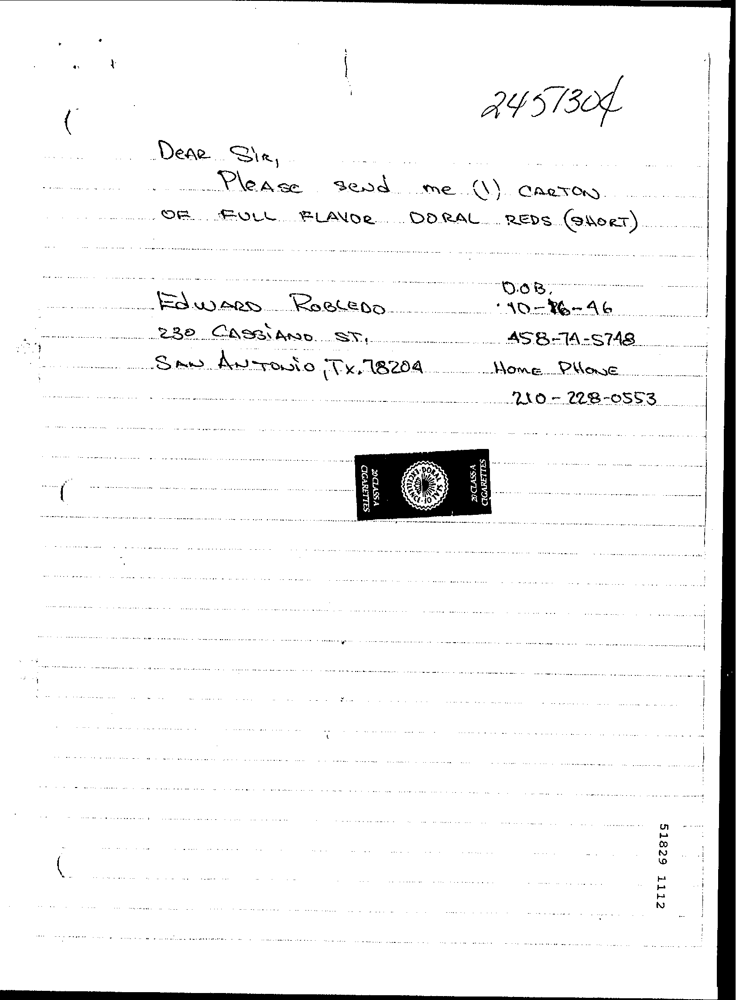 2451304
DEAR SIR,
PLEASE SEND me (1) CARTON
OF FULL FLAVOR DORAL REDS (SHORT)
D.O.B.
EDWARD ROBLEDO 10-16-46
230 CASSIANO ST, 458-74-5748
SAN ANTONIO, TX. 78204 HOME PHONE
210-228-0553
20 CLASS A
CIGARETTES
DORAL
20 CLASS A
CIGARETTES
51829 1112